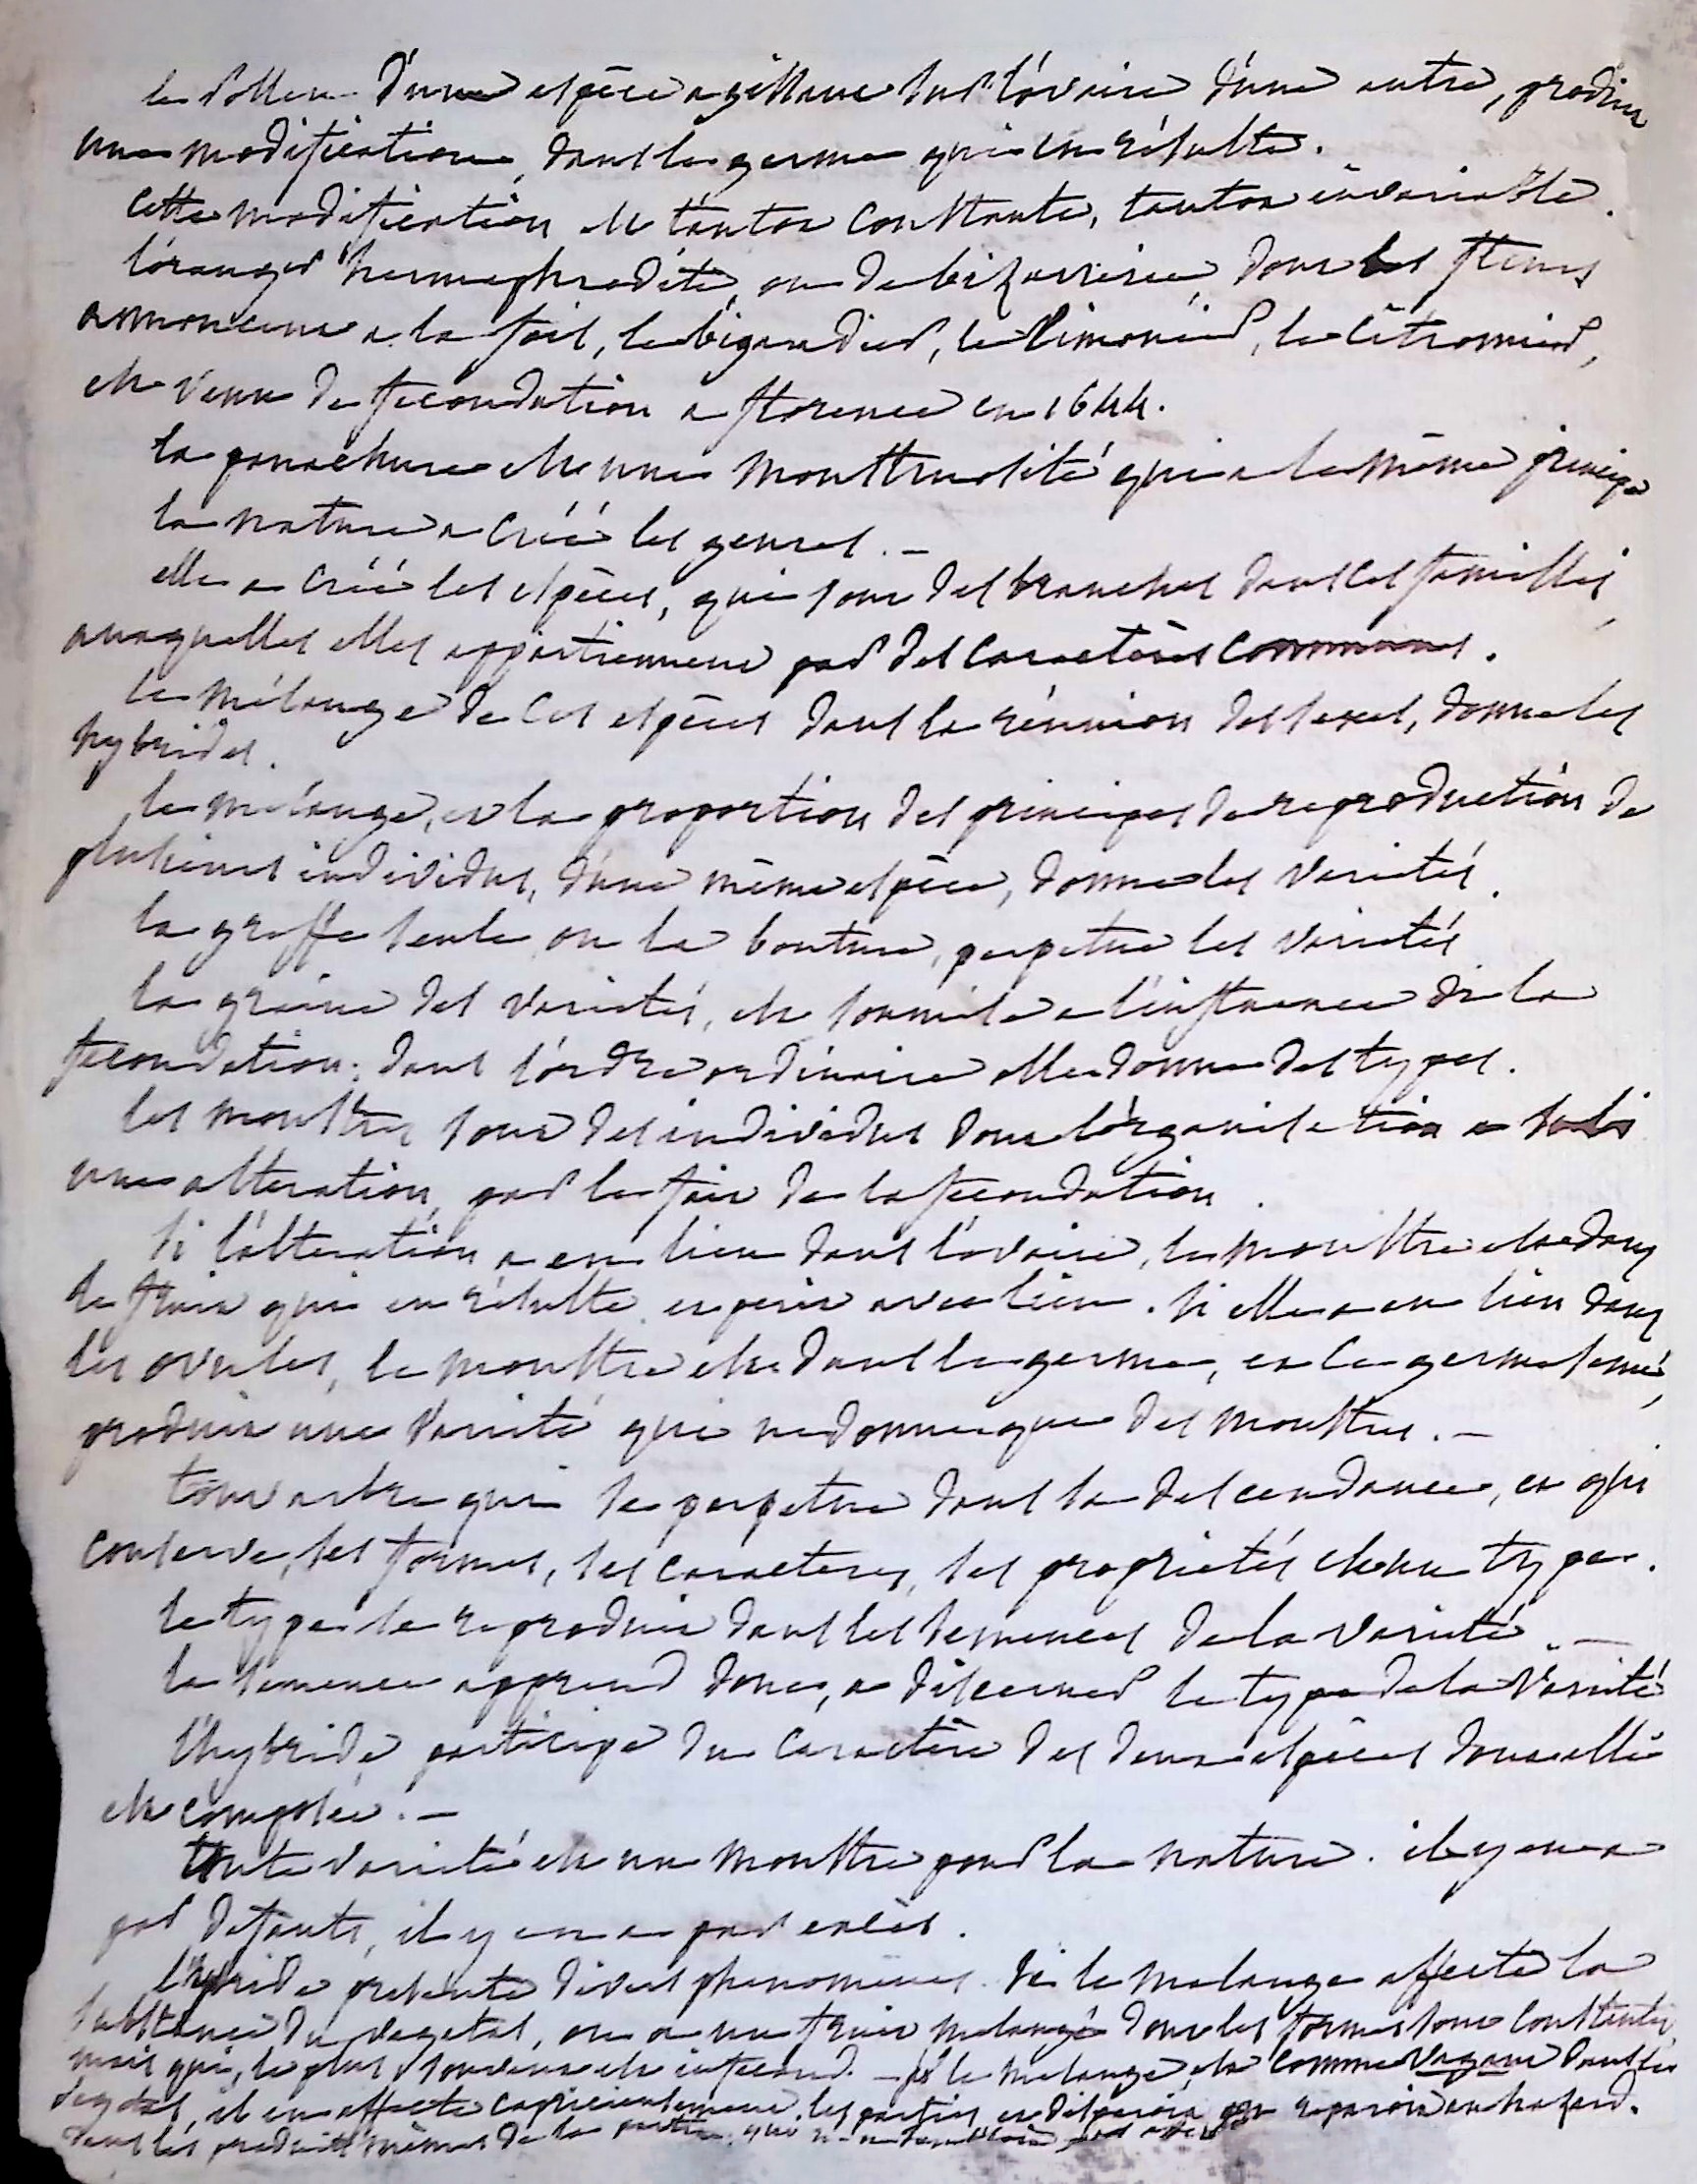 le pollen d'une espèce agissant sur l'ovaire d'une autre, produit
une modification, dans le germe qui en résulte.
cette modification est tantot constante, tantot invariable.
l'oranger hermaphrodite, ou de bizarrerie, dont les fleurs
annoncent a la fois, le bigaradier, le limonier, le citronier,
est venu de fecondation a florence en 1644.
la panachure est une monstruosité qui a le même principe
la nature a créé les genres. -
elle a créé les espèces, qui sont des branches dans ces familles,
auxquelles elles appartiennent par des caractères communs.
le mélange de ces espèces dans la réunion des sexes, donne les
hybrides.
le mélange, et la proportion des principes de reproduction de
plusieurs individus, d'une même espèce, donne les variétés.
la greffe seule ou la bouture, perpetue les variétés
la graine des variétés, est soumise a l'influence de la
fecondation; dans l'ordre ordinaire elle donne des types.
les monstres sont des individus dont l'organisation a subi
une alteration, par le fait de la fecondation.
si l'alteration a eu lieu dans l'ovaire, le monstre est dans
le fruit qui en résulte et perit avec lui. si elle a eu lieu dans
les ovules, le monstre est dans le germe, et ce germe semé,
produit une varieté qui ne donne que des monstres. -
tout arbre qui se perpetue dans sa descendance, et qui
conserve, ses formes, ses caracteres, ses proprietés est un type.
le type se reproduit dans les semences de la varieté. -
la semence apprend donc, a discerner le type de la varieté
l'hybride participe du caractère des deux espèces dont elle
est composée. -
toute varieté est un monstre pour la nature. il y en a
par defauts, il y en a par excès.
l'hybride presente divers phenomènes. si le melange affecte la
substance du vegetal, on a un fruit melangé dont les formes sont constantes
mais qui, le plus souvent est infecond. - si le melange est comme vagant dans le
vegetal, il en affecte capricieusement les parties, et disparoit, et reparoit au hazard.
dans les produits mêmes de la partie qui